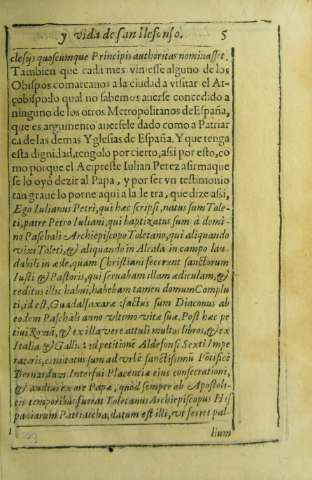 y vida de san Ilefonso. 5
clesijs quoscumque Principis authoritas nominasset.
Tambien que cada mes viniesse alguno de los
Obispos comarcanos a la ciudad a visitar el Ar-
çobispo lo qual no sabemos auerse concedido a
ninguno de los otros Metropolitanos de España,
que es argumento auersele dado como a Patriar
ca de las demas Yglesias de España. Y que tenga
esta dignidad, tengolo por cierto, assi por esto, co
mo porque el Acipreste Iulian Perez afirma que
se lo oyó dezir al Papa, y por ser vn testimonio
tan graue lo porne aqui a la letra, que dize assi,
Ego Iulianus Petri, qui hæc scripsi, natus sum Tole-
ti, patre Petro Iuliani, qui baptizatus sum à domi-
no Paschali Archiepiscopo Toletano, qui aliquando
vixi Toleti, & aliquando in Alcala in campo lau
dabili in æde, quam Christiani fecerunt sanctorum
Iusti & Pastoris, qui seruabam illam ædiculam, &
reditus illic habui, habebam tamen domum Complu
ti, id est, Guadalfaxaræ: factus sum Diaconus ab
eodem Paschali anno vltimo vitæ suæ. Post hæc pe
tiui Romã, & ex illa vere attuli multos libros, & ex
Italia & Gallia: ad petitionẽ Aldefonsi Sexti Impe
ratoris, comitatus sum ad vrbẽ sanctissimũ Põtificẽ
Bernardum. Interfui Placenciæ eius consecrationi,
& audiui ex ore Papæ, quòd semper ab Apostoli-
cis temporibus fuerat Toletanus Archiepiscopus His
paniarum Patriarcha, datum est illi, vt ferret pal-
lium